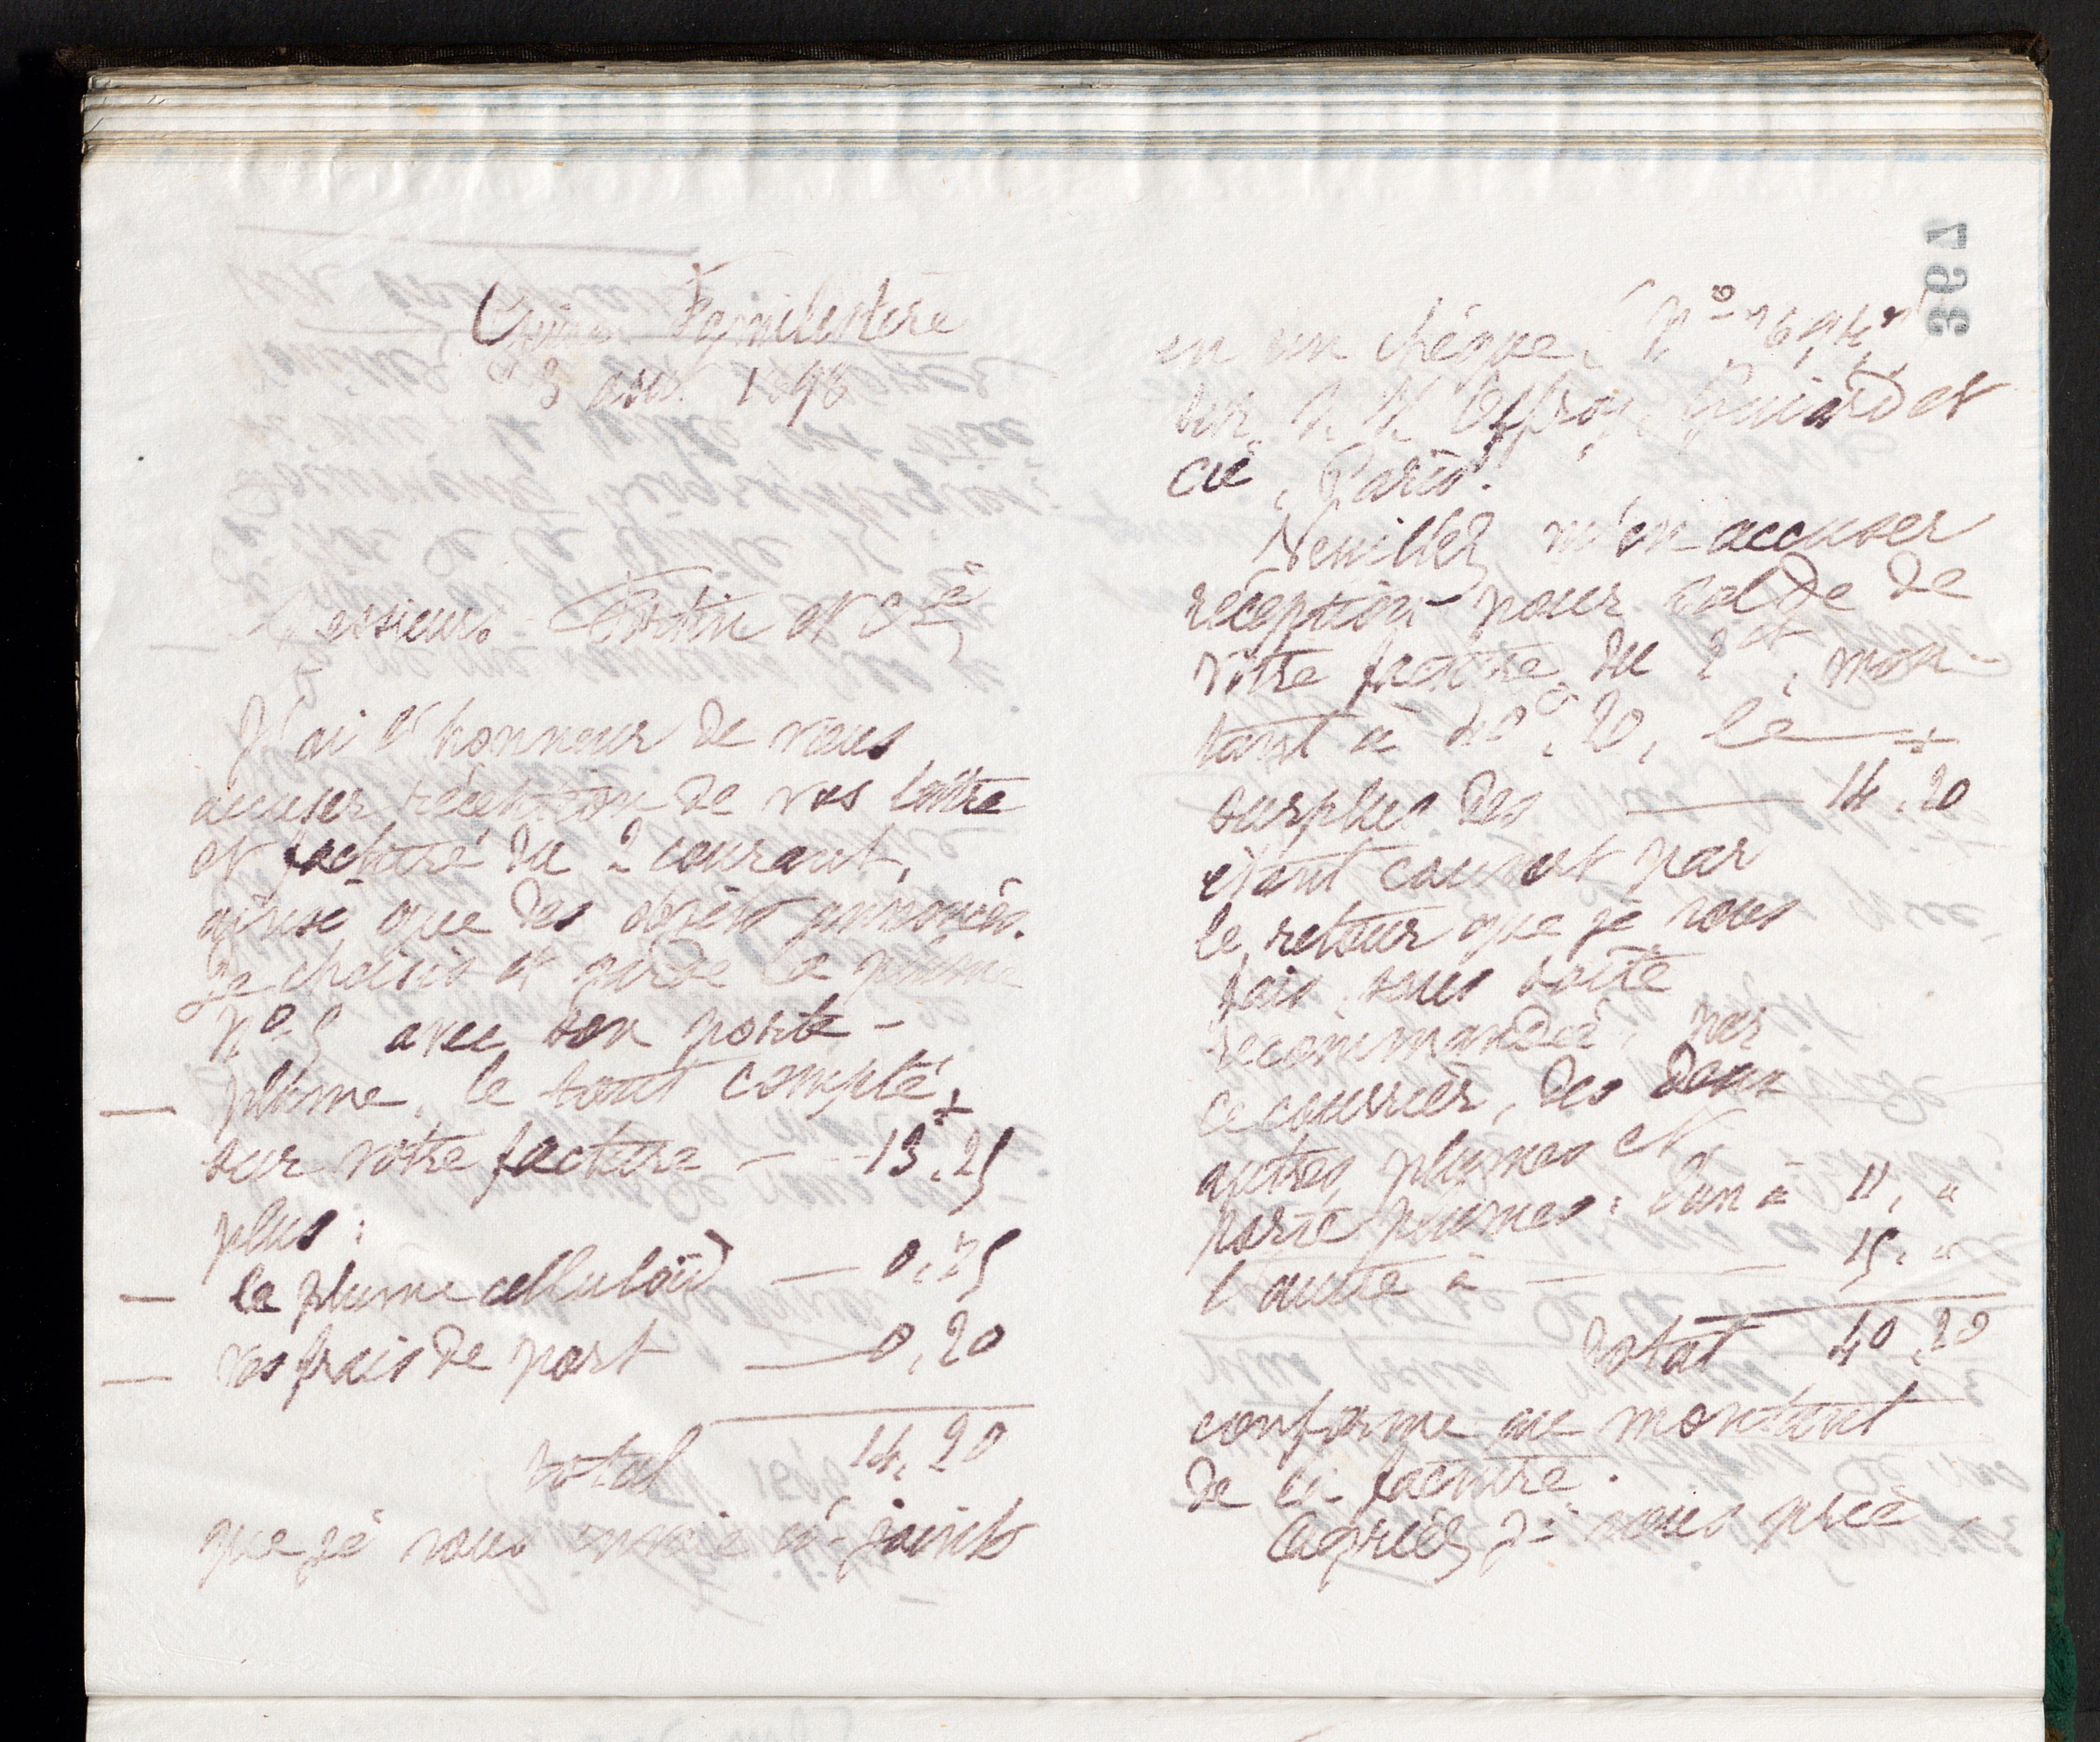 Guise Familistère
3 août 1898
Messieurs Tostin et Cie
J'ai l'honneur de vous
accuser réception de vos lettre
et facture du 2 courant,
ainsi que des objets annoncés.
Je choisis et garde la plume
No 5 avec son porte-
plume, le tout compté
sur votre facture — 13,25
plus :
la plume celluloïd — 0,75
vos frais de port — 0,20
total 14,20
que je vous envoie ci-joints
367
en un chèque, No
sur M. M. Offroy, Guiard et
Cie, Paris.
Veuillez m'en accuser
réception pour solde de
votre facture du 2 ct, mon-
tant à 40f,20, le
surplus des — 14,20
étant couvert par
le retour que je vous
fais, sous boîte
recommandée, par
ce courrier, des deux
autres plumes et
porte plumes : l'un à 11, "
l'autre à — — 15, "
total 40,20
conforme au montant
de la facture.
Agréez, je vous prie